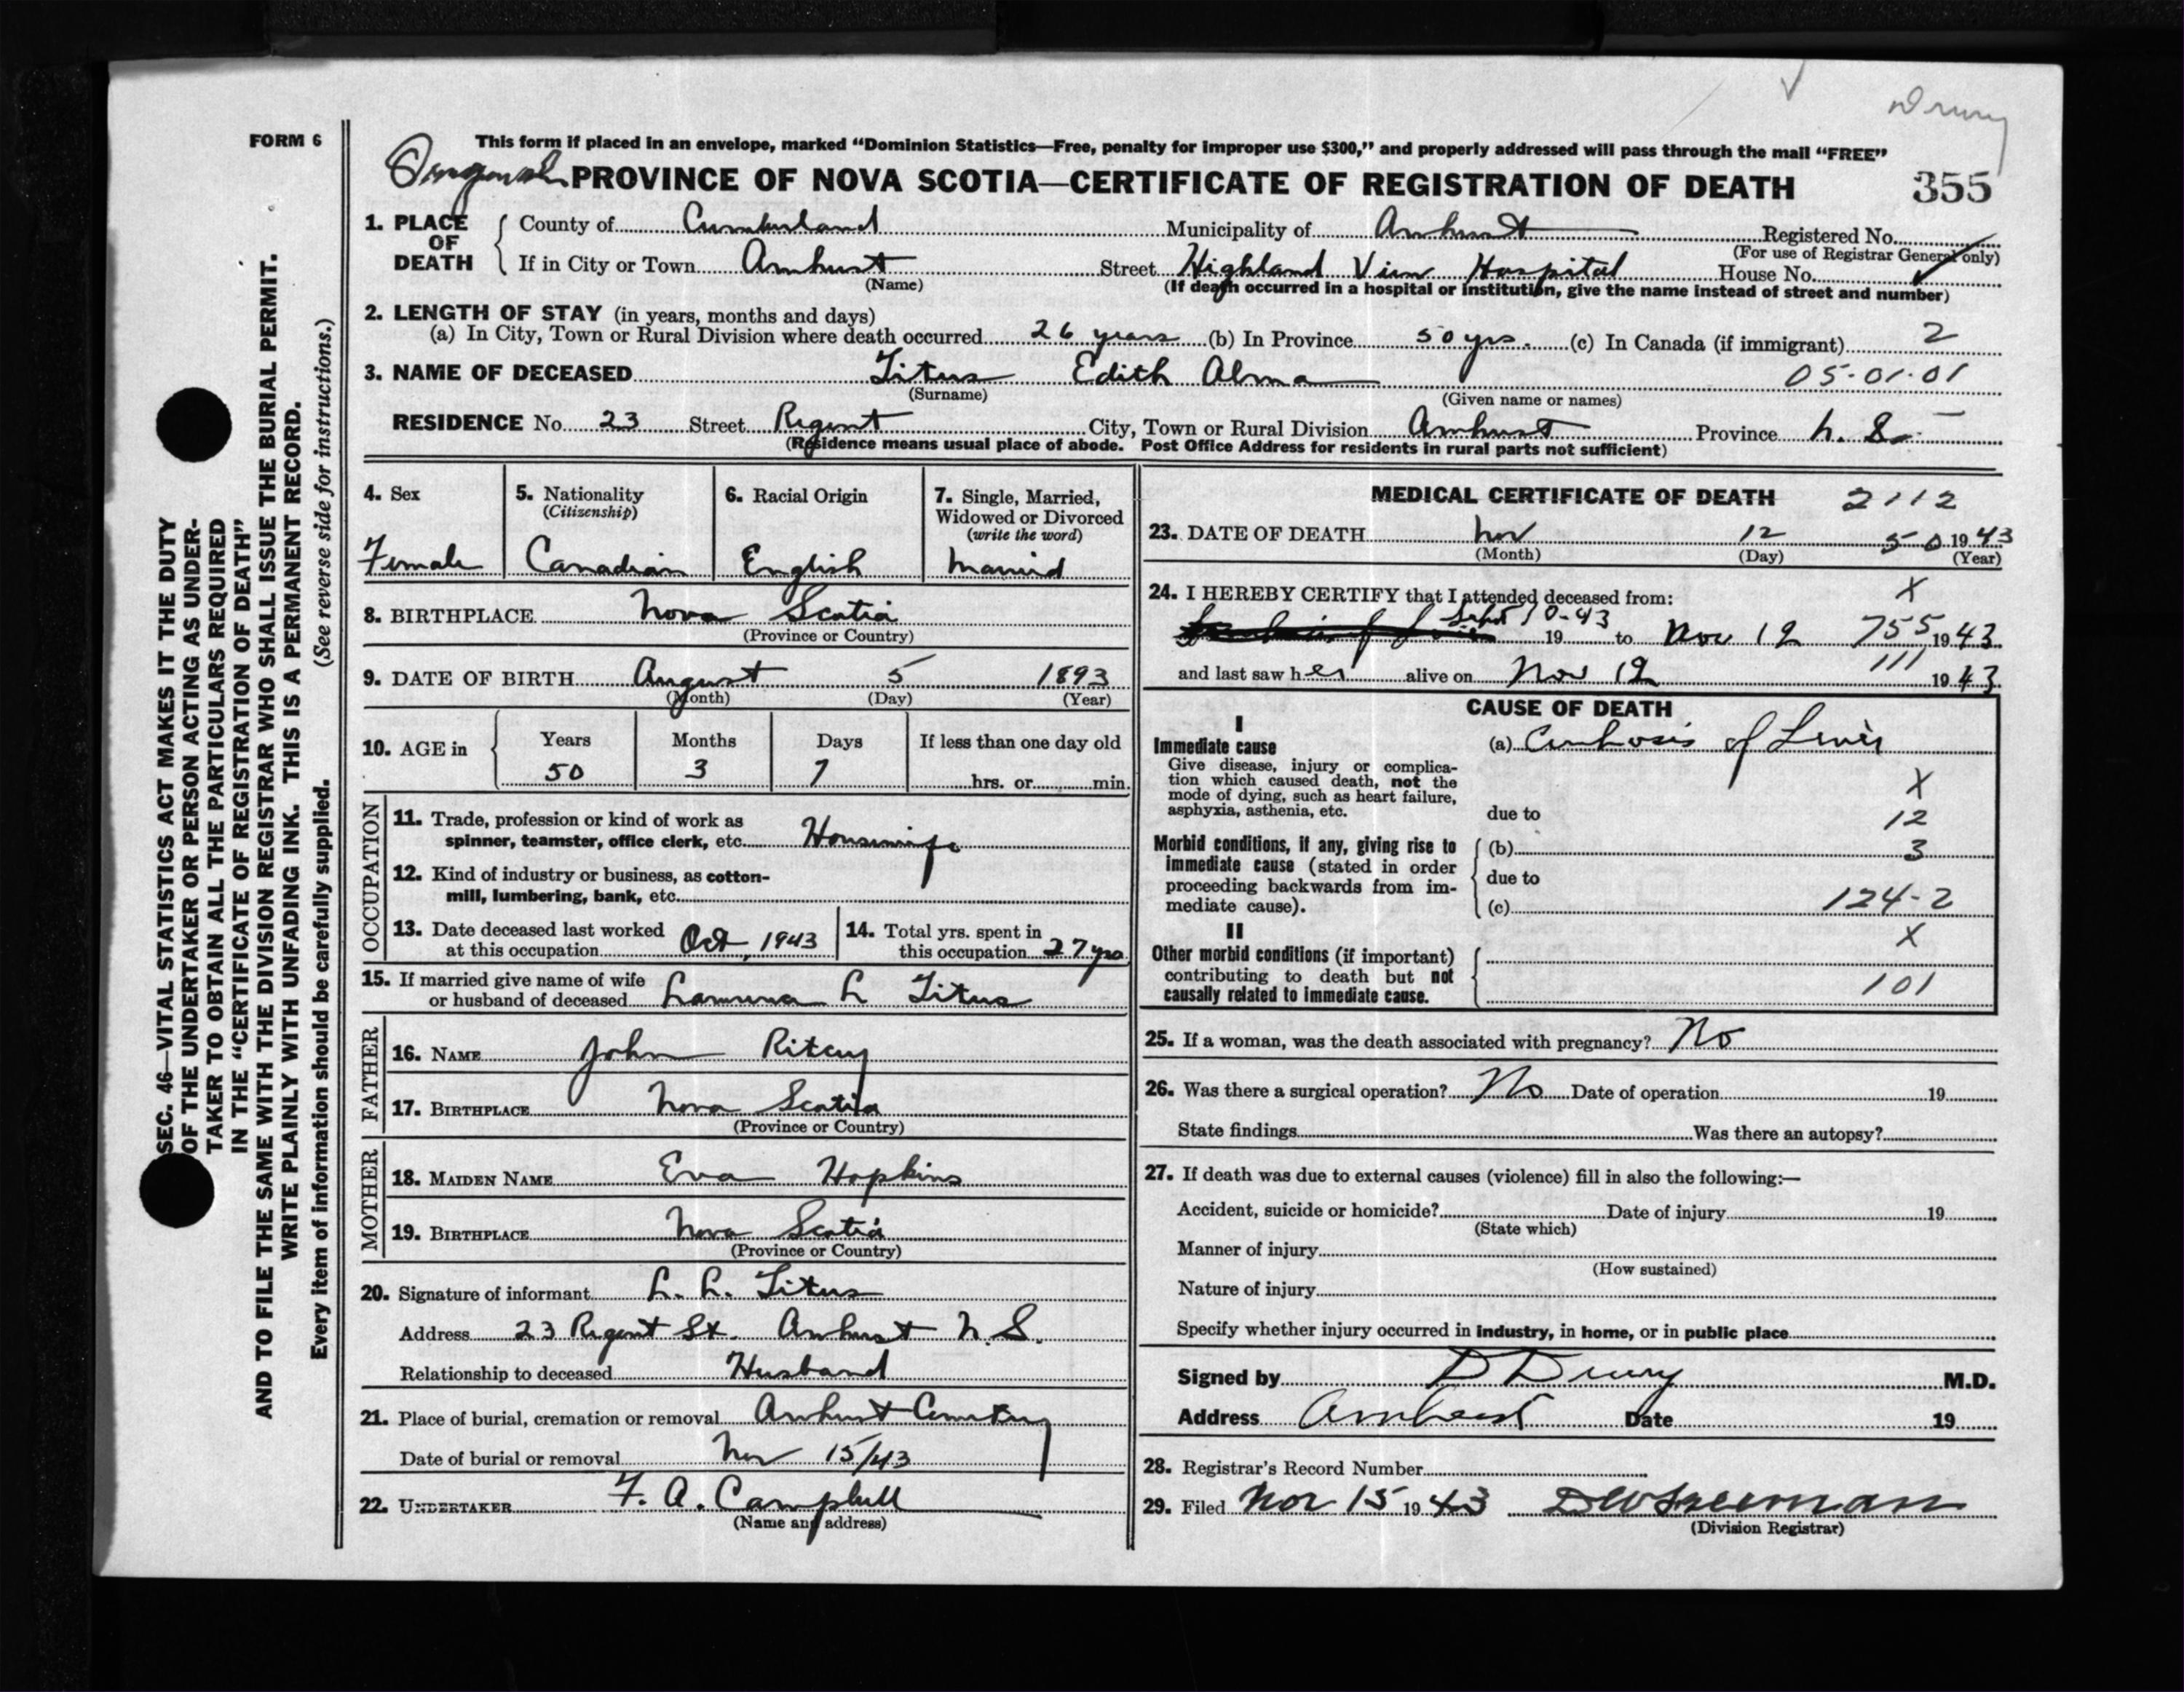 Drury
FORM 6
This form if placed in an envelope, marked "Dominion Statistics—Free, penalty for improper use $300," and properly addressed will pass through the mail "FREE"
PROVINCE OF NOVA SCOTIA—CERTIFICATE OF REGISTRATION OF DEATH 355
1. PLACE OF DEATH County of Cumberland Municipality of Amherst Registered No.
(For use of Registrar General only)
If in City or Town Amherst Street Highland View Hospital House No.
(Name) (If death occurred in a hospital or institution, give the name instead of street and number)
2. LENGTH OF STAY (in years, months and days)
(a) In City, Town or Rural Division where death occurred 26 years (b) In Province 50 yrs. (c) In Canada (if immigrant) 2
3. NAME OF DECEASED Titus Edith Alma 05-01-01
(Surname) (Given name or names)
RESIDENCE No. 23 Street Regent City, Town or Rural Division Amherst Province N. S.
(Residence means usual place of abode. Post Office Address for residents in rural parts not sufficient)
4. Sex Female
5. Nationality (Citizenship) Canadian
6. Racial Origin English
7. Single, Married, Widowed or Divorced (write the word) Married
8. BIRTHPLACE Nova Scotia
(Province or Country)
9. DATE OF BIRTH August 5 1893
(Month) (Day) (Year)
10. AGE in Years Months Days If less than one day old
50 3 7 hrs. or min.
OCCUPATION
11. Trade, profession or kind of work as
spinner, teamster, office clerk, etc. Housewife
12. Kind of industry or business, as cotton-
mill, lumbering, bank, etc.
13. Date deceased last worked
at this occupation Oct, 1943
14. Total yrs. spent in
this occupation 27 yrs
15. If married give name of wife
or husband of deceased L Titus
FATHER
16. NAME John Ritcey
17. BIRTHPLACE Nova Scotia
(Province or Country)
MOTHER
18. MAIDEN NAME Eva Hopkins
19. BIRTHPLACE Nova Scotia
(Province or Country)
20. Signature of informant L. L. Titus
Address 23 Regent St. Amherst N.S.
Relationship to deceased Husband
21. Place of burial, cremation or removal Amherst Cemetery
Date of burial or removal Nov 15/43
22. UNDERTAKER F. A. Campbell
(Name and address)
MEDICAL CERTIFICATE OF DEATH 2112
23. DATE OF DEATH Nov 12 50 1943
(Month) (Day) (Year)
24. I HEREBY CERTIFY that I attended deceased from: X
Sept 10-43 19 to Nov 12 755 1943
111
and last saw her alive on Nov 12 1943
CAUSE OF DEATH
I
Immediate cause (a) Cirrhosis of Liver
Give disease, injury or complica-
tion which caused death, not the
mode of dying, such as heart failure,
asphyxia, asthenia, etc.
X
due to 12
Morbid conditions, if any, giving rise to
immediate cause (stated in order
proceeding backwards from im-
mediate cause).
(b) 3
due to
(c) 124-2
II X
Other morbid conditions (if important)
contributing to death but not
causally related to immediate cause. 101
25. If a woman, was the death associated with pregnancy? No
26. Was there a surgical operation? No Date of operation 19
State findings Was there an autopsy?
27. If death was due to external causes (violence) fill in also the following:—
Accident, suicide or homicide? Date of injury 19
(State which)
Manner of injury
(How sustained)
Nature of injury
Specify whether injury occurred in industry, in home, or in public place
Signed by D Drury M.D.
Address Amherst Date 19
28. Registrar's Record Number
29. Filed Nov 15 1943
(Division Registrar)
SEC. 46—VITAL STATISTICS ACT MAKES IT THE DUTY
OF THE UNDERTAKER OR PERSON ACTING AS UNDER-
TAKER TO OBTAIN ALL THE PARTICULARS REQUIRED
IN THE "CERTIFICATE OF REGISTRATION OF DEATH"
AND TO FILE THE SAME WITH THE DIVISION REGISTRAR WHO SHALL ISSUE THE BURIAL PERMIT.
WRITE PLAINLY WITH UNFADING INK. THIS IS A PERMANENT RECORD.
Every item of information should be carefully supplied. (See reverse side for instructions.)